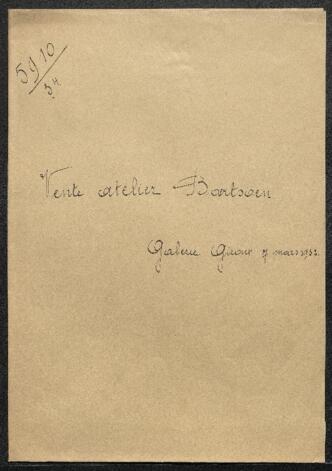 5910
34
Vente atelier Baertsoen
Galerie Giroux 7 mars 1932.